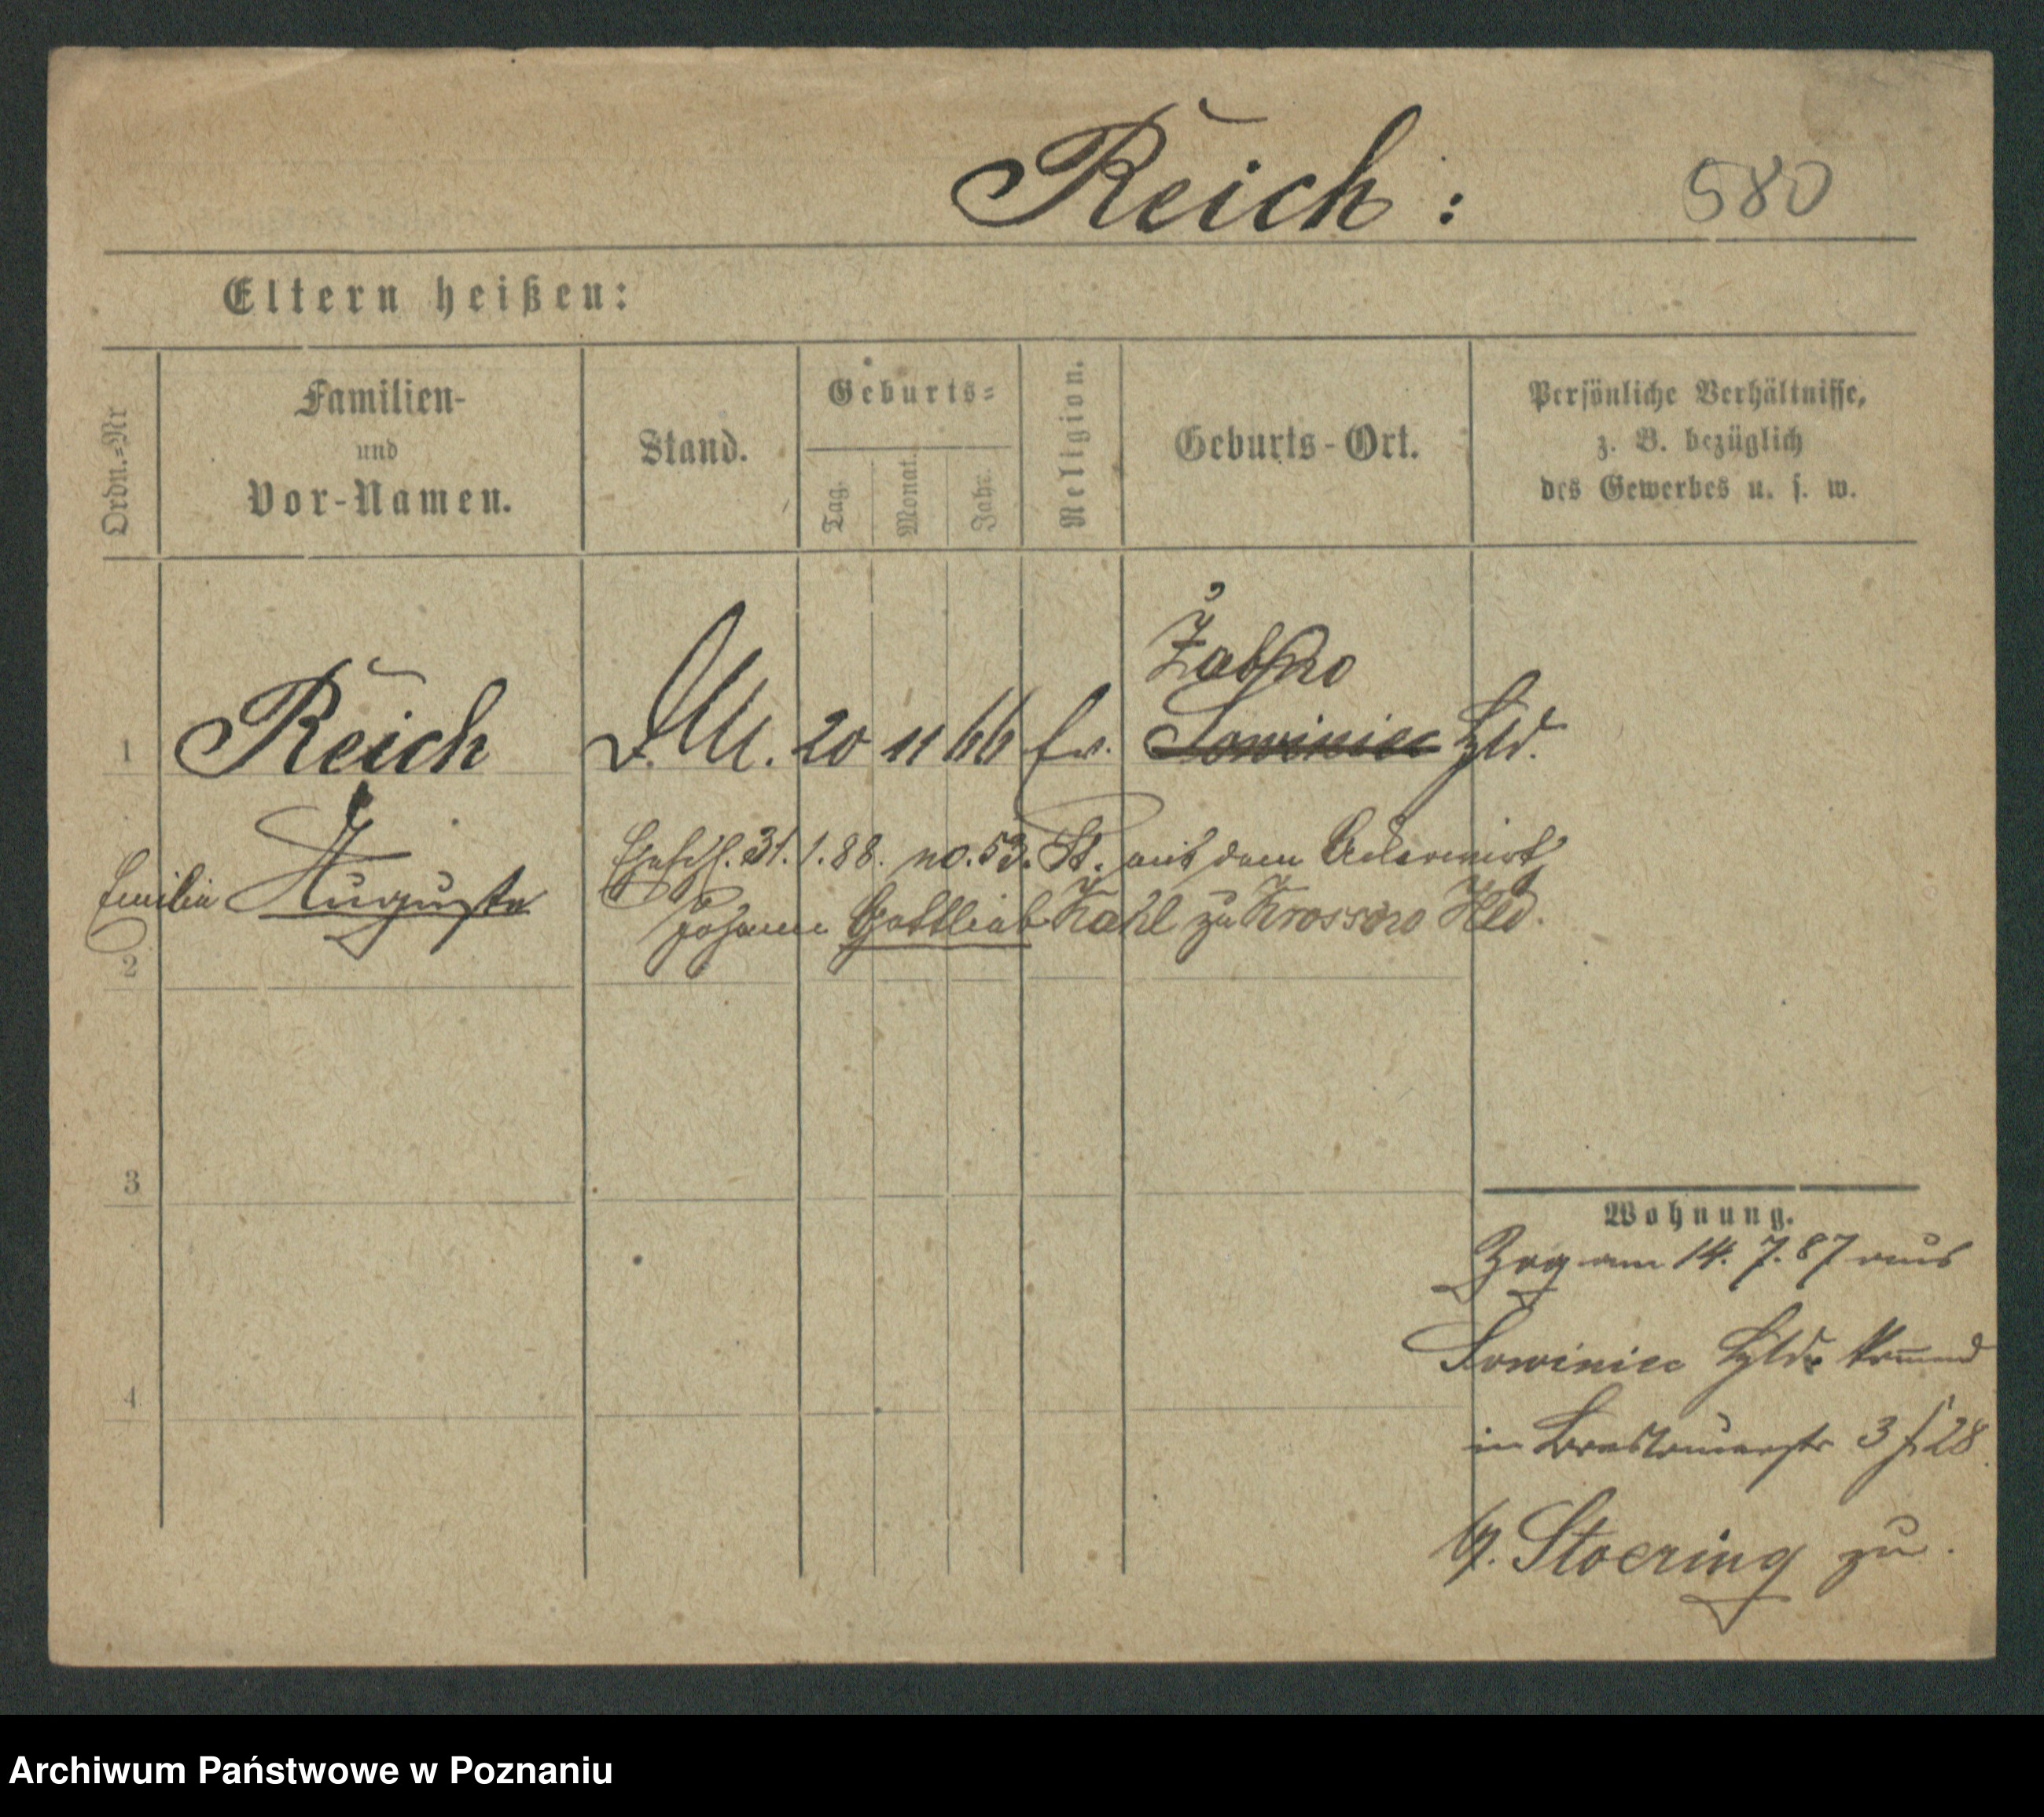 Reich :
580
Eltern heißen:
Ordn.=Nr
Familien-
und
Vor-Namen.
Stand.
Geburts=
Tag.
Monat.
Jahr.
Religion.
Geburts-Ort.
Persönliche Verhältnisse,
z. B. bezüglich
des Gewerbes u. s. w.
Żabno
1 Reich D. M. 20 11 66 Ev. Sowiniec Hld.
Emilie Auguste
Ehesch. 31.1.88. no. 53. St. mit dem Ackerwirth
Johann Gottlieb Kahl zu Krossno Hld.
2
3
4
Wohnung.
Zog am 14. 7. 87 aus
Sowiniec Hld. kommend
in Breslauerstr 3
b/. Stoering zu.
Archiwum Państwowe w Poznaniu